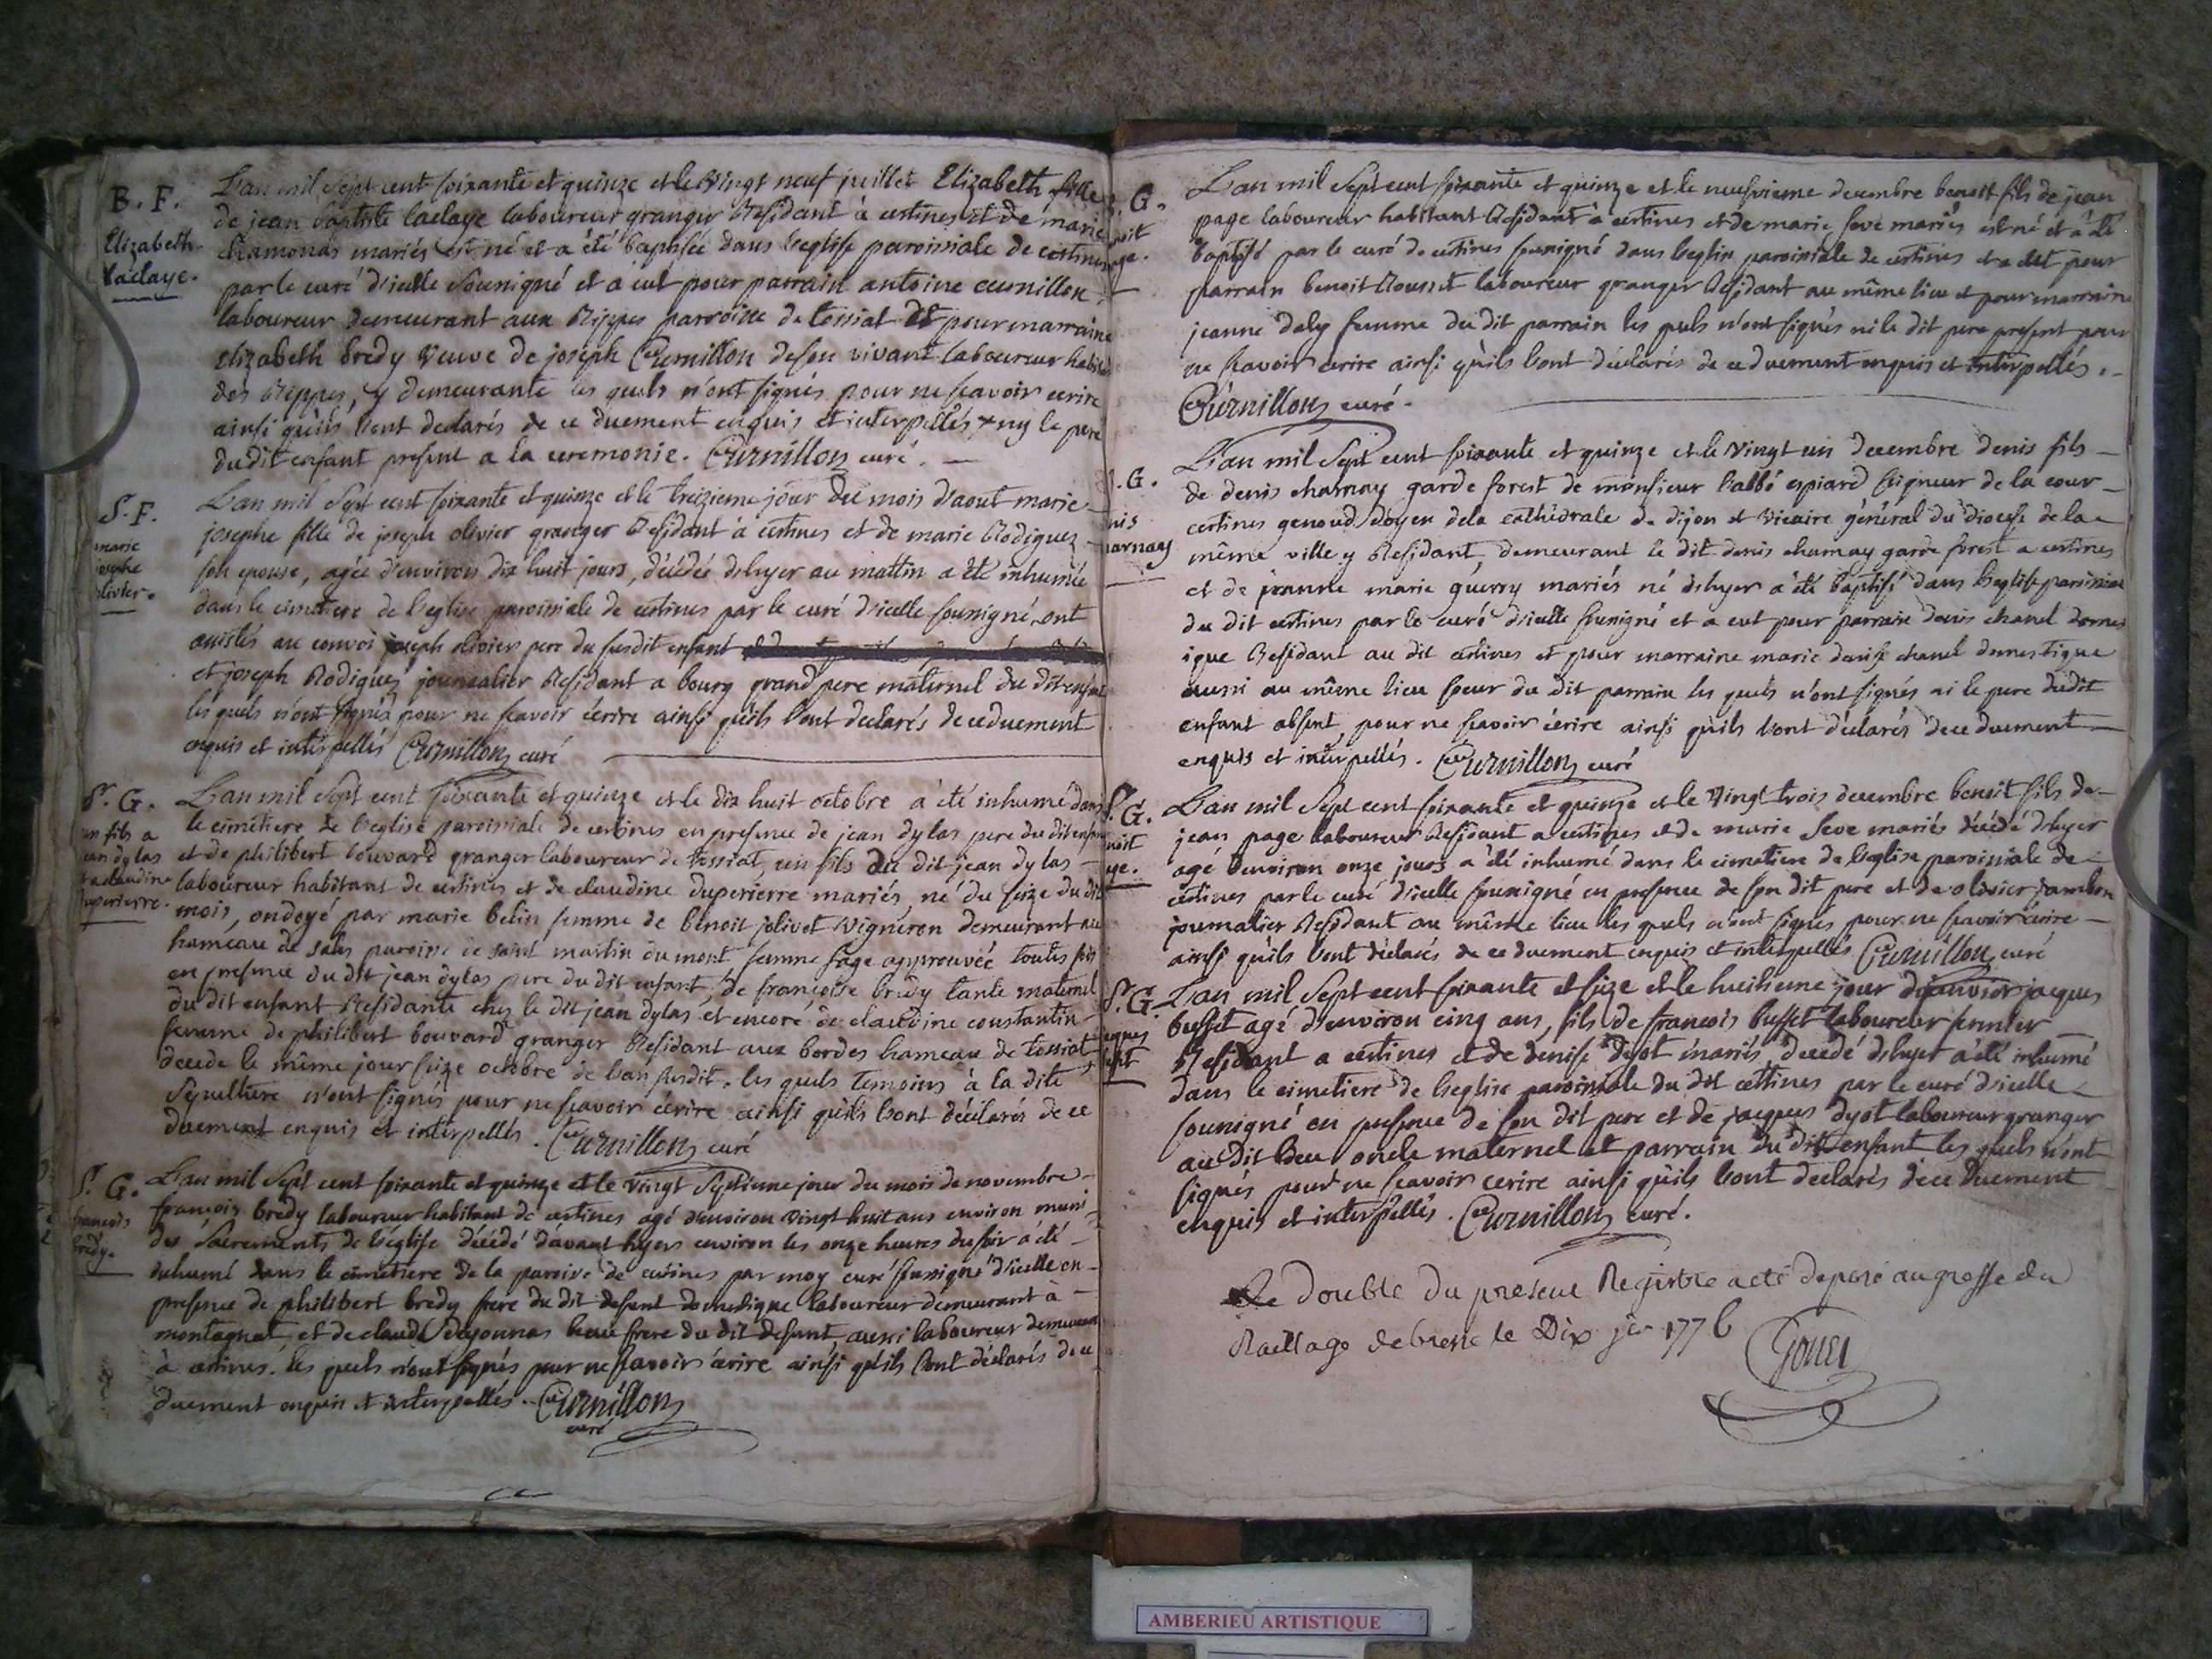 B. F.
Elizabeth
Laclaye.
L'an mil Sept cent soixante et quinze et le Vingt neuf juillet Elizabeth fille
de jean baptiste laclaye laboureur granger Residant à certines et de marie
chamonas mariés est né et a été baptisée dans l'eglise paroissiale de certines
par le curé d'icelle Sousigné et a eut pour parrain antoine curnillon
laboureur demeurant aux Rippes parroisse de tossiat et pour marraine
elizabeth bredy veuve de joseph Curnillon de son vivant laboureur habitant
des Rippes, y demeurante les quels n'ont signés pour ne scavoir ecrire
ainsi qu'ils l'ont declarés de ce duement enquis et interpellés + ny le pere
du dit enfant present a la ceremonie. Curnillon curé.
S. F.
marie
josephe
olivier.
L'an mil Sept cent soixante et quinze et le treizieme jour du mois d'aout marie
josephe fille de joseph olivier granger Residant à certines et de marie Rodiguez
son epouse, agée d'environ dix huit jours, décédée d'hyer au mattin a été inhumée
dans le cimetiere de l'eglise paroissiale de certines par le curé d'icelle sousigné, ont
assistés au convoi joseph olivier pere du susdit enfant
et joseph Rodiguez journalier Residant a bourg grand pere maternel du dit enfant
les quels n'ont signés pour ne scavoir écrire ainsi qu'ils l'ont declarés de ce duement
enquis et interpellés Curnillon curé
S. G.
un fils a
jean dylas
et a claudine
duperierre.
L'an mil Sept cent soixante et quinze et le dix huit octobre a été inhumé dans
le cimetiere de l'eglise paroissiale de certines en presence de jean dylas pere du dit enfant
et de philibert bouvard granger laboureur de tossiat, un fils du dit jean dylas
laboureur habitant de certines et de claudine duperierre mariés, né du seize du dit
mois, ondoyé par marie belin femme de benoit jolivet vigneron demeurant au
hameau de sales paroisse de saint martin du mont femme sage approuvée toutes fois
en presence du dit jean dylas pere du dit enfant, de françoise bredy tante maternel
du dit enfant Residante chez le dit jean dylas et encore de claudine constantin
femme de philibert bouvard granger Residant aux bordes hameau de tossiat
decede le même jour seize octobre de l'an susdit. les quels temoins à la dite
Sepulture n'ont signés pour ne scavoir écrire ainsi qu'ils l'ont déclarés de ce
duement enquis et interpellés. Curnillon curé
S. G.
francois
bredy.
L'an mil Sept cent soixante et quinze et le vingt Septieme jour du mois de novembre
françois bredy laboureur habitant de certines agé d'environ vingt huit ans environ muni
des Sacrements de l'eglise décédé d'avant hyers environ les onze heures du soir a été
inhumé dans le cimetiere de la paroisse de certines par moy curé sousigné d'icelle en
presence de philibert bredy frere du dit defunt domestique laboureur demeurant à
montagnat, et de claude dejounas beau frere du dit defunt aussi laboureur demeurant
à certines. les quels n'ont signés pour ne scavoir écrire ainsi qu'ils l'ont déclarés de ce
duement enquis et interpellés. Curnillon
curé
G.
L'an mil Sept cent soixante et quinze et le neufvieme decembre benoit fils de jean
page laboureur habitant Residant à certines et de marie seve mariés est né et a été
baptisé par le curé de certines sousigné dans l'eglise paroissiale de certines et a eut pour
parrain benoit Rousset laboureur granger Residant au même lieu et pour marraine
jeanne daly femme du dit parrain les quels n'ont signés ni le dit pere present pour
ne scavoir écrire ainsi qu'ils l'ont déclarés de ce duement enquis et interpellés.
Curnillon curé.
G.
L'an mil Sept cent soixante et quinze et le Vingt un decembre denis fils
de denis charnay garde forest de monsieur l'abbé espiard seigneur de la cour
certines genoud doyen de la cathédrale de dijon et vicaire général du diocese de la
même ville y Residant, demeurant le dit denis charnay garde forest a certines
et de jeanne marie guerry mariés né d'hyer a été baptisé dans l'eglise paroissiale
du dit certines par le curé d'icelle sousigné et a eut pour parrain denis chanel domes
tique Residant au dit certines et pour marraine marie denise chanel domestique
aussi au même lieu soeur du dit parrain les quels n'ont signés ni le pere du dit
enfant absent, pour ne scavoir écrire ainsi qu'ils l'ont déclarés de ce duement
enquis et interpellés. Curnillon curé
S. G.
L'an mil Sept cent soixante et quinze et le Vingt trois decembre benoit fils de
jean page laboureur Residant a certines et de marie Seve mariés décédé d'hyer
agé d'environ onze jours a été inhumé dans le cimetiere de l'eglise paroissiale de
certines par le curé d'icelle sousigné en presence de son dit pere et de olivier jambon
journalier Residant au même lieu les quels n'ont signés pour ne scavoir écrire
ainsi qu'ils l'ont déclarés de ce duement enquis et interpellés Curnillon curé
S. G.
L'an mil Sept cent soixante et seize et le huitieme jour de janvier jacques
buffet agé d'environ cinq ans, fils de francois buffet laboureur fermier
Residant a certines et de denise dyot mariés, decedé d'hyer a été inhumé
dans le cimetiere de l'eglise paroissiale du dit certines par le curé d'icelle
sousigné en presence de son dit pere et de jacques dyot laboureur granger
au dit lieu oncle maternel et parrain du dit enfant les quels n'ont
signés pour ne scavoir ecrire ainsi qu'ils l'ont declarés de ce duement
enquis et interpellés. Curnillon curé.
Le double du present Registre a eté deposé au greffe du
Bailliage de bresse le Dix jer 1776
AMBERIEU ARTISTIQUE